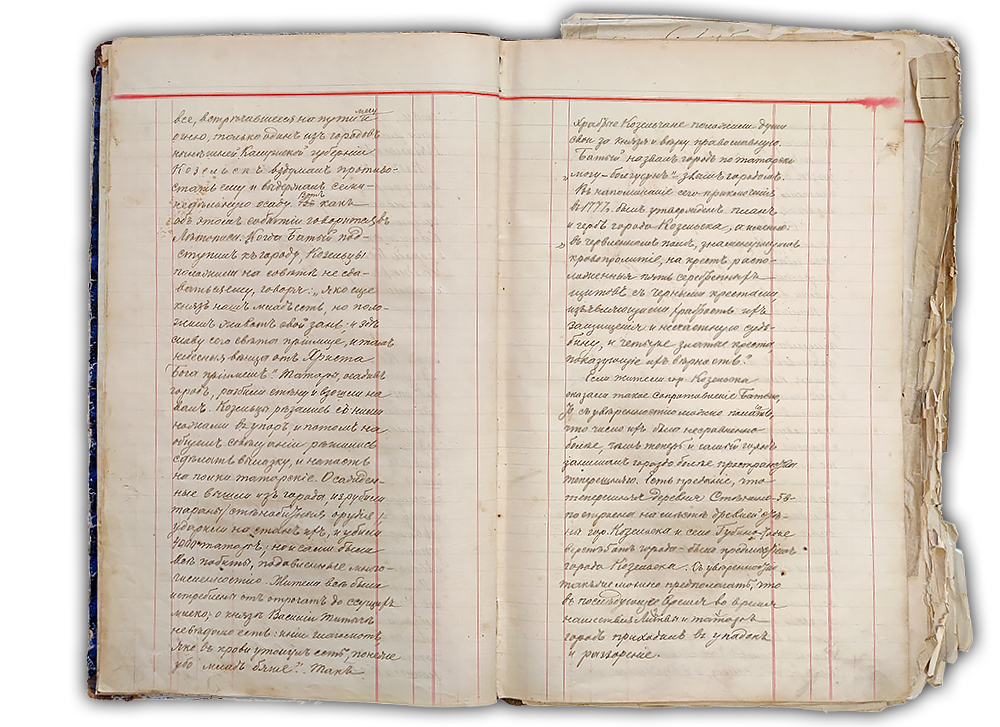 мечу
все, встрѣчавшееся на пути и
огню, только одинъ изъ городовъ
нынѣшней Калужской губерніи
Козельскъ вздумалъ противо-
стать ему и выдержалъ семи-
недѣльную осаду. Вотъ какъ
объ этомъ событіи говорится въ
Лѣтописи. Когда Батый под-
ступилъ къ городу, Козельцы
положили на совѣтѣ не сда-
ваться ему, говоря: „яко еще
князь нашъ младъ есть, но поло-
жимъ животъ свой зань: и здѣ
славу сего свѣта пріимше, и тамъ
небесныя вѣнцы отъ Христа
Бога пріимемъ". Татары, осадивъ
городъ, разбили стѣну и взошли на
валъ. Козельцы рѣзались съ ними
ножами въ упоръ и потомъ на
общемъ совѣщаніи рѣшились
сдѣлать вылазку, и напасть
на полки татарскіе. Осажден-
ные вышли изъ города изрубили
тараны/стѣнобитныя орудія/
ударили на станъ ихъ, и убили
4000 татаръ; но и сами были
всѣ побиты, подавленные много-
численностью. Жители всѣ были
истреблены отъ отрочатъ до ссущихъ
млеко; о князѣ Василіи Титычѣ
невѣдомо есть: иніи глаголютъ
яко въ крови утонулъ есть, понеже
убо младъ бяше". Такъ
храбрые Козельчане положили души
свои за князя и вѣру православную.
Батый назвалъ городъ по татарски
могу-болгусунъ" — злымъ городомъ.
Въ напоминаніе сего приключенія
въ 1777 былъ утвержденъ планъ
и гербъ города Козельска, а именно:
въ червленномъ полѣ, знаменующемъ
кровопролитіе, на крестъ распо-
ложенныя пять серебряныхъ
щитовъ съ черными крестами,
изъявляющими храбрость ихъ
защищенія и несчастную судь-
бину, и четыре златые креста
показующіе ихъ вѣрность".
Если жители гор. Козельска
оказали такое сопротивленіе Батыю,
то съ увѣренностью можно полагать,
что число ихъ было несравненно
болѣе, чѣмъ теперь и самый городъ
занималъ гораздо болѣе пространства
теперешняго. Есть преданіе, что
теперешняя деревня
построена на древней
гор. Козельска и село
верстъ отъ города — было предмѣстьемъ
города Козельска. Съ увѣренностью
также можно предполагать, что
въ послѣдующее время во время
нашествія Литвы и татаръ
городъ приходилъ въ упадокъ
и разореніе.